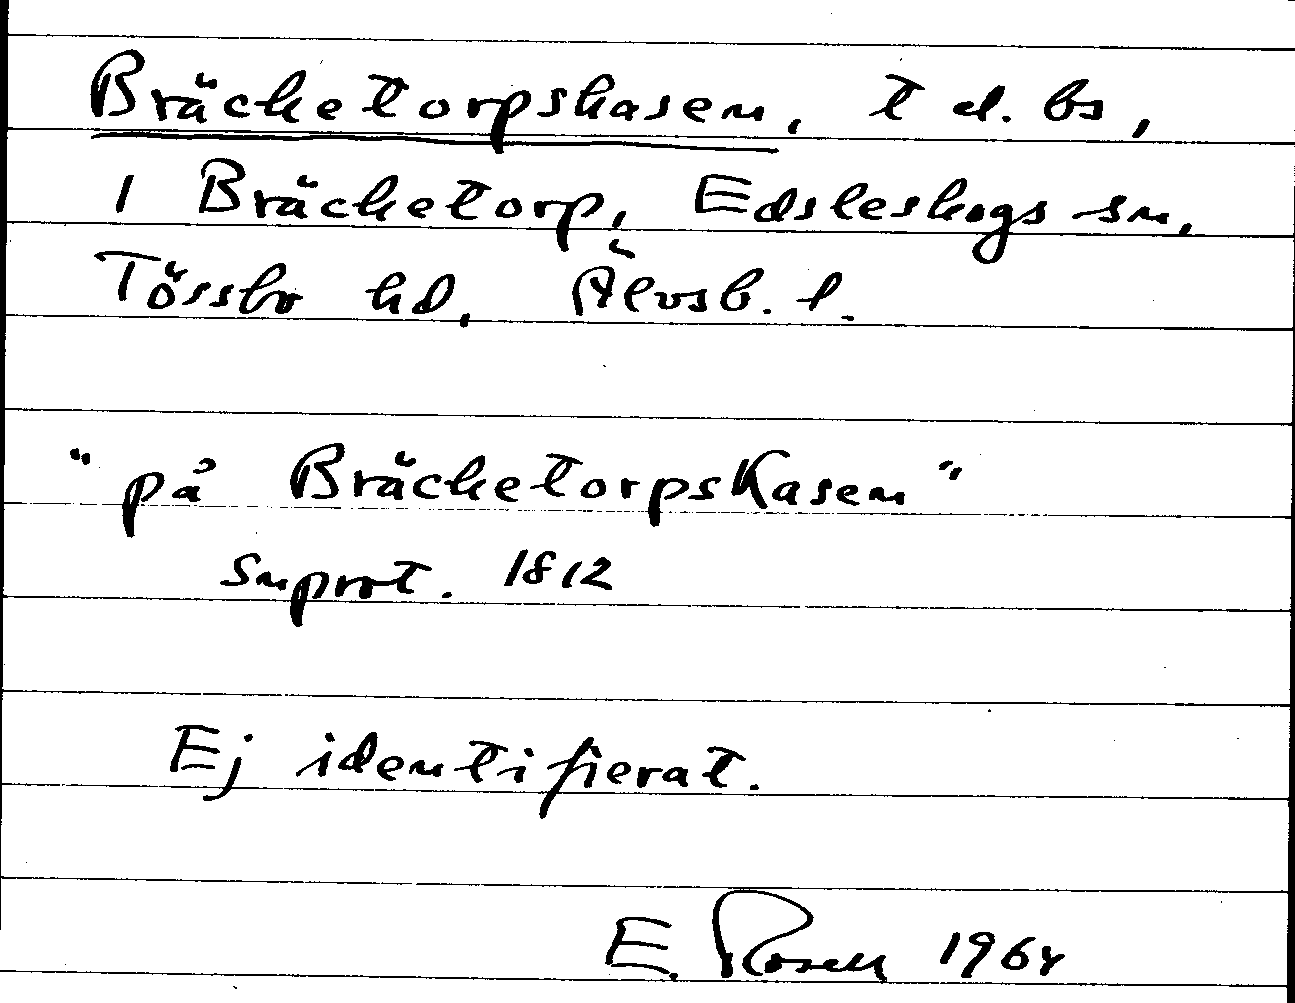 Bräcketorpskasen, t el. bs,
i Bräcketorp, Edsleskogs sn,
Tössbo hd, Älvsb. l.
"på Bräcketorpskasen"
Snprot. 1812
Ej identifierat.
E. Rosell 1964